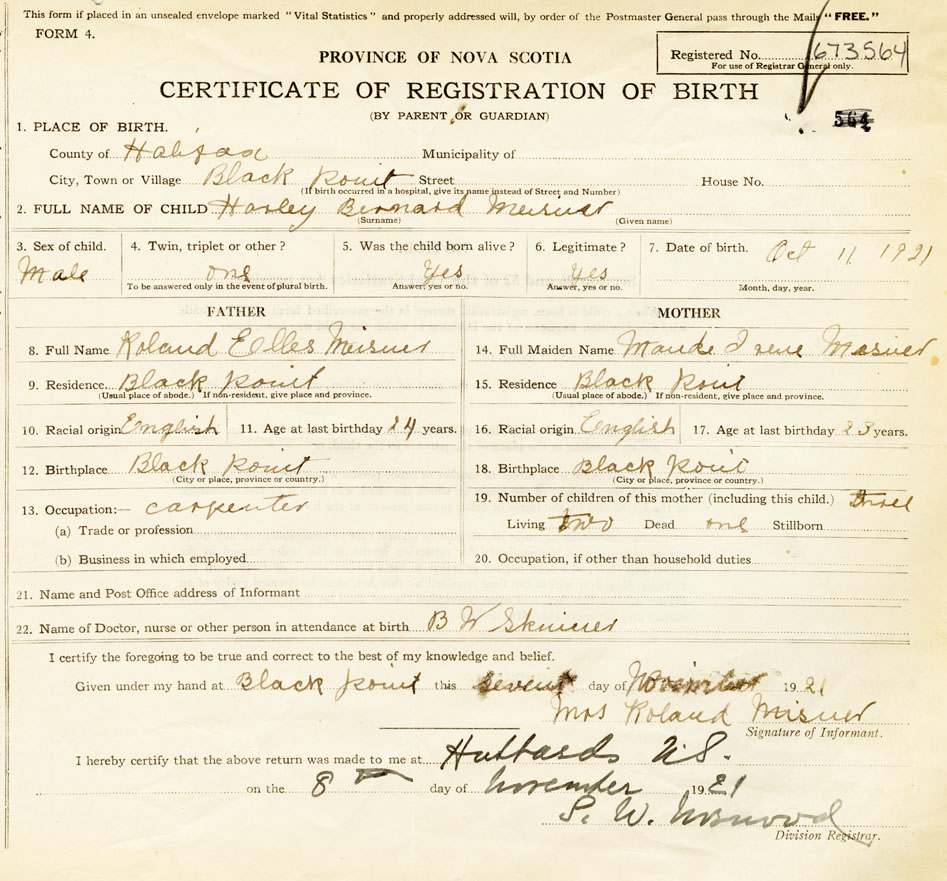 This form if placed in an unsealed envelope marked "Vital Statistics" and properly addressed will, by order of the Postmaster General pass through the Mails "FREE."
FORM 4.
PROVINCE OF NOVA SCOTIA
Registered No. 673564
For use of Registrar General only.
CERTIFICATE OF REGISTRATION OF BIRTH
(BY PARENT OR GUARDIAN)
564
1. PLACE OF BIRTH.
County of Halifax Municipality of
City, Town or Village Black Point Street House No.
(If birth occurred in a hospital, give its name instead of Street and Number)
2. FULL NAME OF CHILD Harley Bernard Meisner
(Surname) (Given name)
3. Sex of child. 4. Twin, triplet or other? 5. Was the child born alive? 6. Legitimate? 7. Date of birth. Oct 11 1921
Male one Yes Yes
To be answered only in the event of plural birth. Answer, yes or no. Answer, yes or no. Month, day, year.
FATHER MOTHER
8. Full Name Roland Elles Meisner 14. Full Maiden Name Maude Irene Mesner
9. Residence. Black Point 15. Residence Black Point
(Usual place of abode.) If non-resident, give place and province. (Usual place of abode.) If non-resident, give place and province.
10. Racial origin English 11. Age at last birthday 24 years. 16. Racial origin English 17. Age at last birthday 23 years.
12. Birthplace Black Point 18. Birthplace Black Point
(City or place, province or country.) (City or place, province or country.)
13. Occupation:— carpenter 19. Number of children of this mother (including this child.) three
(a) Trade or profession Living two Dead one Stillborn
(b) Business in which employed 20. Occupation, if other than household duties
21. Name and Post Office address of Informant
22. Name of Doctor, nurse or other person in attendance at birth B W Skinner
I certify the foregoing to be true and correct to the best of my knowledge and belief.
Given under my hand at Black Point this sevent day of November 1921
Mrs Roland Misner
Signature of Informant.
I hereby certify that the above return was made to me at Hubbards N.S.
on the 8 day of November 1921
S. W. Norwood
Division Registrar.